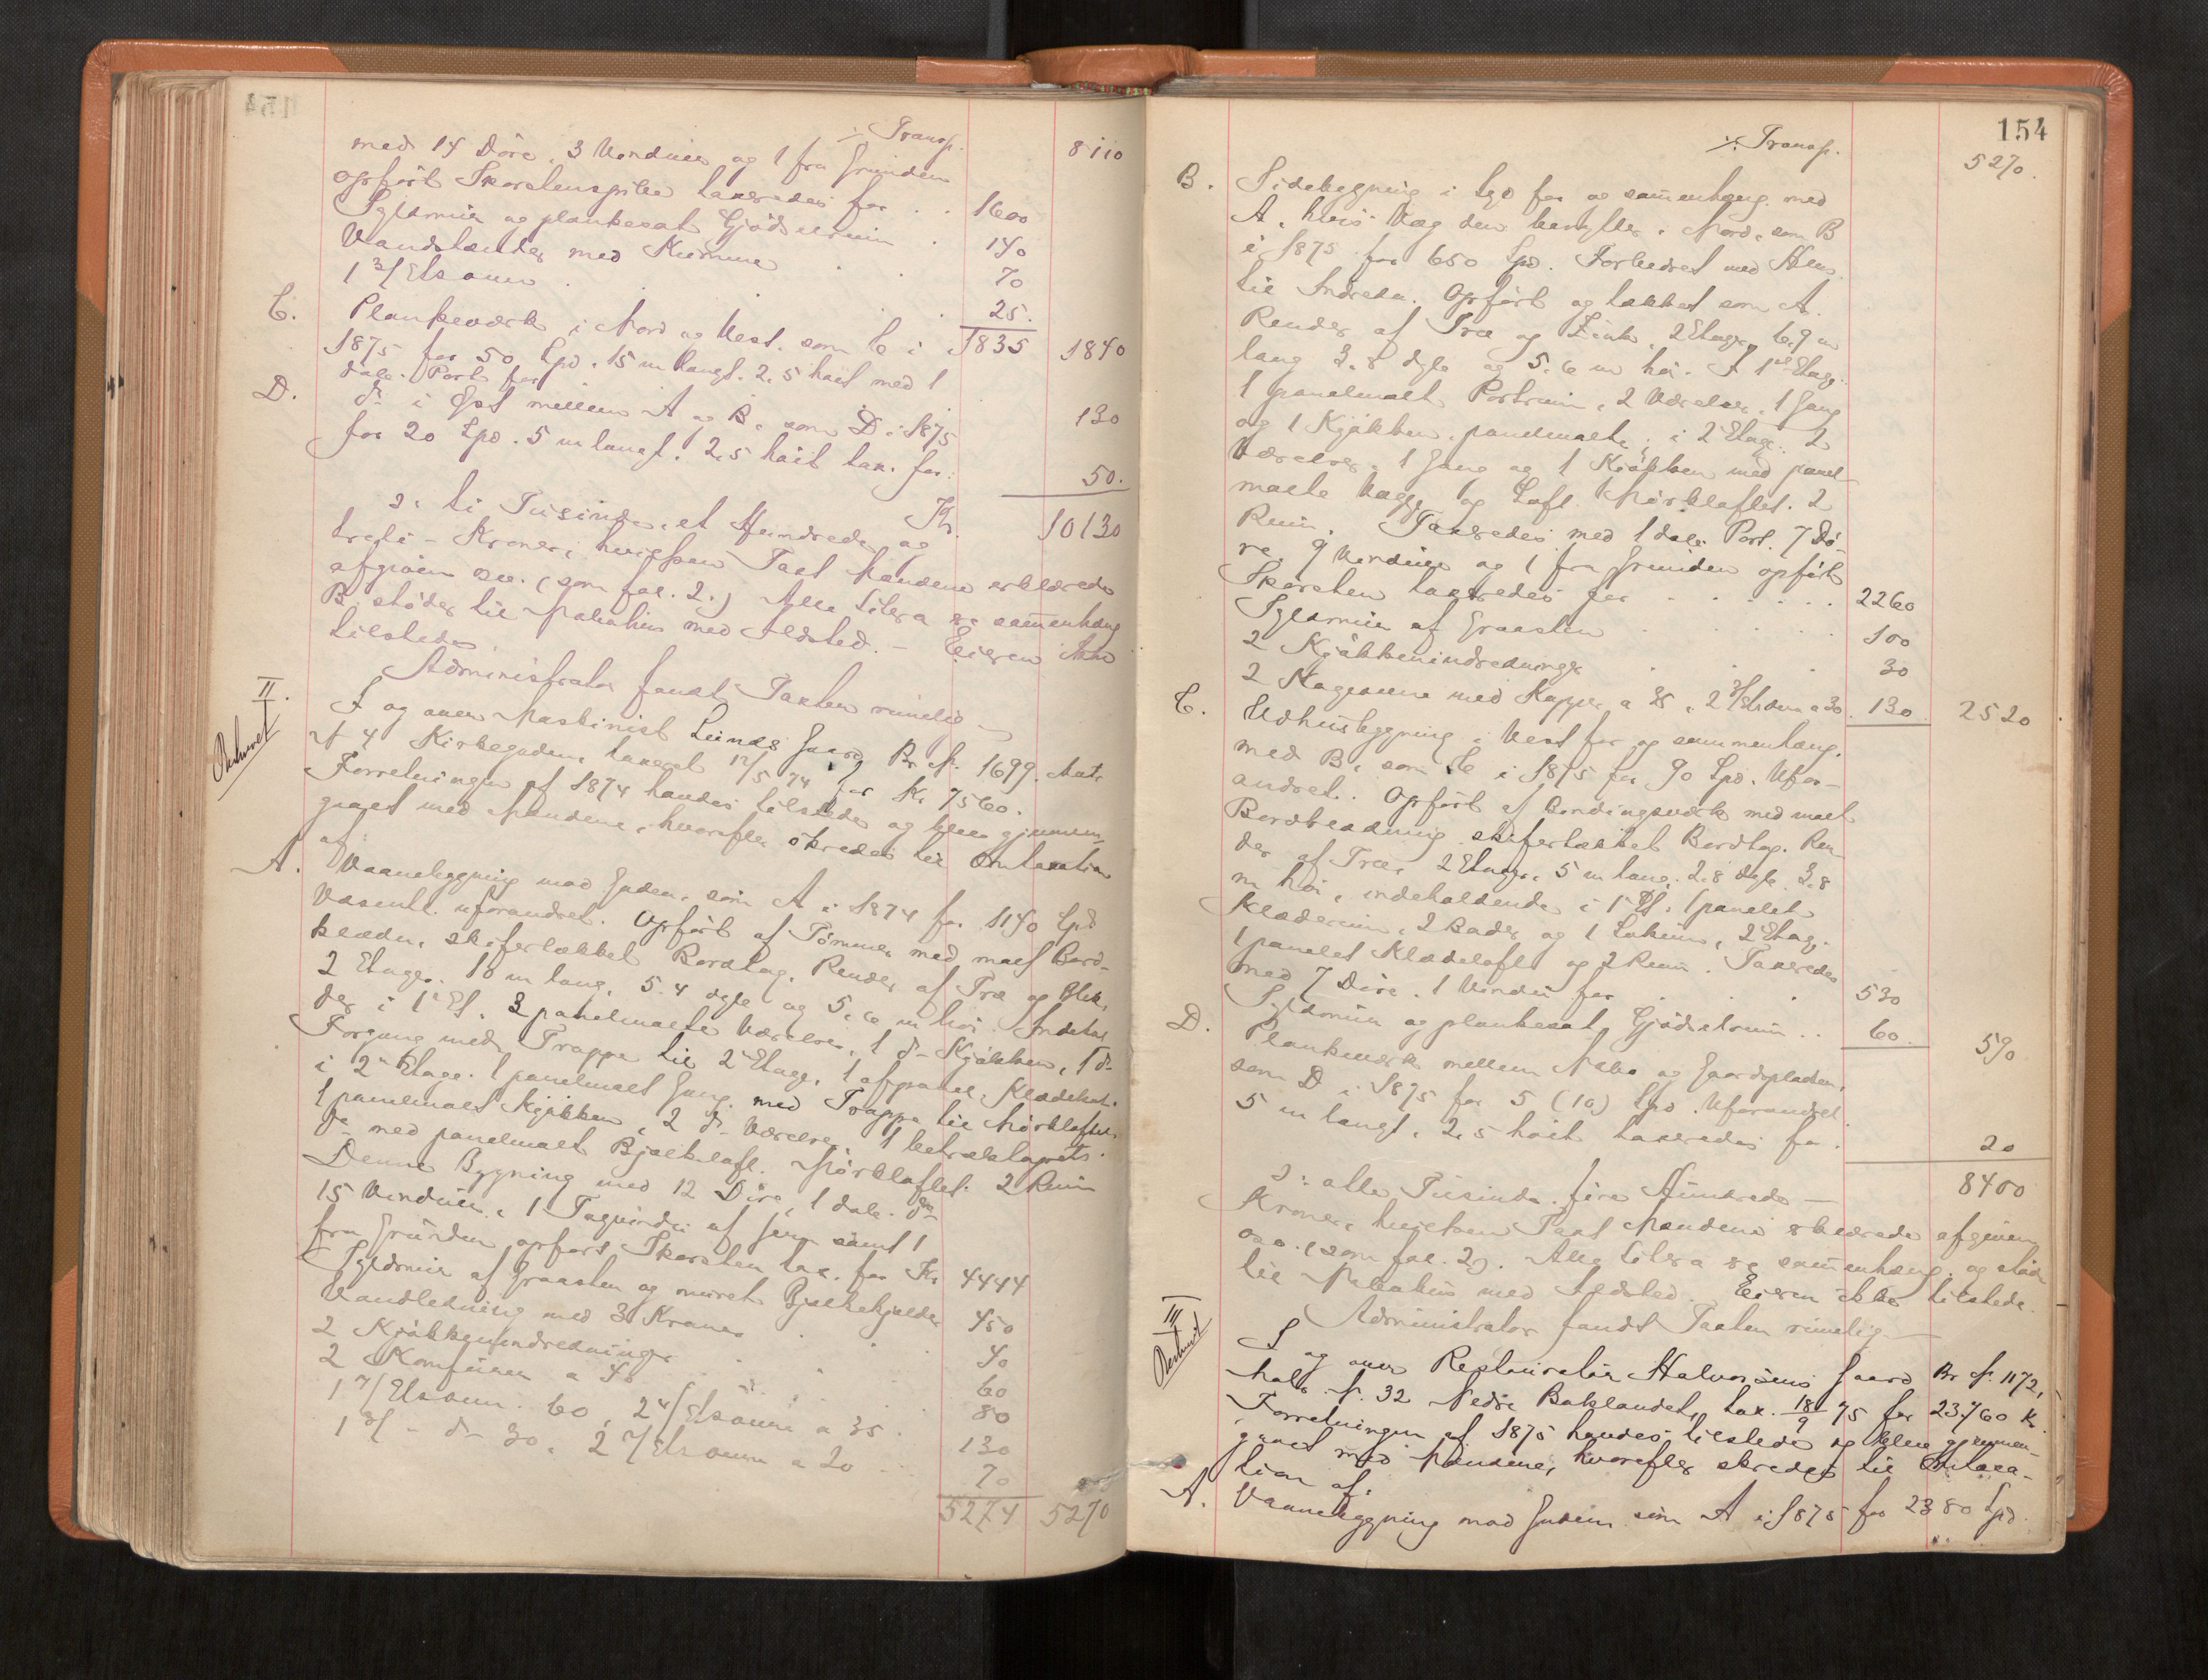 ÷ Transp. 8110
med 14 Döre, 3 Vinduer og 1 fra Grunden
opført Skorstenspibe taxeredes for . . 1600
Syldmur og plankesat Gjödselrum . 140
Vandstænder med Kumme . . 70
1 3/Etsovn . . . . 25.
1835 1840
C. Plankeværk i Nord og Vest som C i
1875 for 50 Spd. 15 m langt. 2,5 höit med 1
dobl. Port for 130
D. do i Öst mellem A og B, som D i 1875
for 20 Spd. 5 m langt. 2,5 höit tax. for. 50.
Kr. 10130
ɔ: ti Tusinde, et Hundrede og
treti - Kroner, hvilken Taxt Mændene erklærede
afgiven osv. (som fol. 2.) Alle Litera er sam̄enhæng
B stöder til Nabohus med Ildsted. - Eieren ikke
tilstede
Administrator fandt Taxten rimelig
II. Beskrevet
I og over Maskinist Leinæs Gaard Br. №. 1699. Matr.
№ 4 Kirkegaden, taxeret 12/5 74 for Kr 7560.
Forretningen af 1874 havdes tilstede og blev gjennem-
gaaet med Mændene, hvorefter skredes til Omtaxation
af:
A. Vaanebygning mod Gaden, som A i 1874 for 1140 Spd
Væsentl. uforandret. Opført af Tömmer med malt Bord-
klædn. skifertækket Bordtag. Render af Træ og Blik,
2 Etager. 10 m lang, 5.4 dyb og 5,6 m höi. Indehol
der i 1e Et. 3 panelmalte Værelser, 1 do Kjökken, 1 do
Forgang med Trappe til 2 Etage, 1 afpanel. Klædekot.
i 2n Etage. 1 panelmalt Gang med Trappe til Mörkloftet,
1 panelmalt Kjökken, 2 do Værelser, 1 betrækktapets.
do med panelmalt Bjælkeloft. Mörkloftet: 2 Rum
Denne Bygning med 12 Döre, 1 dobl. do
15 Vinduer, 1 Tagvindu af Jern samt 1
fra Grunden opført Skorsten tax. for Kr 4444
Syldmur af Graasten og muret Bjælkekjelder 450
Vandledning med 3 Kraner . . . 40
2 Kjökkenindredninger . . . 60
2 Komfurer a 40 . . . 80
1 7/Etsovn. 60, 2 4/Etsovne a 35 . 130
1 3/ - do 30, 2 2/Etsovne a 20 . . 70
5274 5270
154
÷ Transp. 5270.
B. Sidebygning i Syd for og sam̄enhæng. med
A, hvis Væg den benytter i Nord, som B
i 1875 for 650 Spd. Forbedret med Hen
til Indredn. Opført og tækket som A.
Render af Træ og Zink, 2 Etager, 6,9 m
lang 3.8 dyb og 5.6 m höi. I 1ste Etage
1 panelmalt Portrum, 2 Værelser, 1 Gang
og 1 Kjökken, panelmalte; i 2 Etage. 2
Værelser, 1 Gang og 1 Kjökken med panel-
malte Vægge og Loft. Mörkloftet. 2
Rum. Taxeredes med 1 dobl. Port, 7 Dö-
re, 9 Vinduer og 1 fra Grunden opført
Skorsten taxeredes for . . . . . . 2260
Syldmur af Graasten . . . . . 100
2 Kjökkenindredninger . . . 30
2 Magasine med Kapper a 35, 2 3/Etsovn a 30. 130 2520
C. Udhusbygning i Vest for og sammenhæng.
med B, som C i 1875 for 90 Spd. Ufor-
andret. Opført af Bindingsverk med malt
Bordklædning, skifertækket Bordtag. Ren-
der af Træ, 2 Etager, 5 m lang. 2.8 dyb 3.8
m höi, indeholdende i 1e Et. 1 panelet
Klæderum, 2 Boder og 1 Lokum, 2 Etag.
1 panelet Klædeloft og 2 Rum. Taxeredes
med 7 Döre, 1 Vindu for . . . 530
Syldmur og plankesat Gjödselrum . . 60. 590
D. Plankeværk mellem Nabo og Gaardspladsen,
som D i 1875 for 5 (10) Spd. Uforandret
5 m langt, 2,5 höit taxeredes for. 20
8400
ɔ: otte Tusinde fire Hundrede —
Kroner, hvilken Taxt Mændene erklærede afgiven
osv. (som fol. 2). Alle Litera er sam̄enhæng. og stöder
til Nabohus med Ildsted. Eieren ikke tilstede.
Administrator fandt Taxten rimelig —
III Beskrevet
I og over Restauratör Halvorsens Gaard Br. №. 1172,
Matr. №. 32 Nedre Baklandet, tax. 18/9 75 for 23.760 Kr.
Forretningen af 1875 havdes tilstede og blev gjennem-
gaaet med Mændene, hvorefter skredes til Omtaxa-
tion af:
A. Vaanebygning mod Gaden som A i 1875 for 2380 Spd.